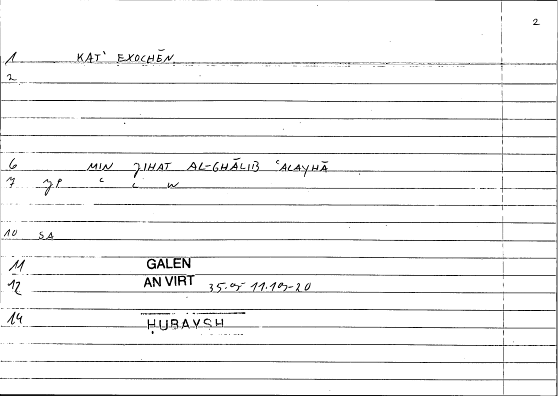 2
1 KAT' EXOCHĒN
2
6 MIN JIHAT AL-GHĀLIB 'ALAYHĀ
7 JP c c w
10 SA
11 GALEN
12 AN VIRT 35.05 11.19-20
14 ḤUBAYSH